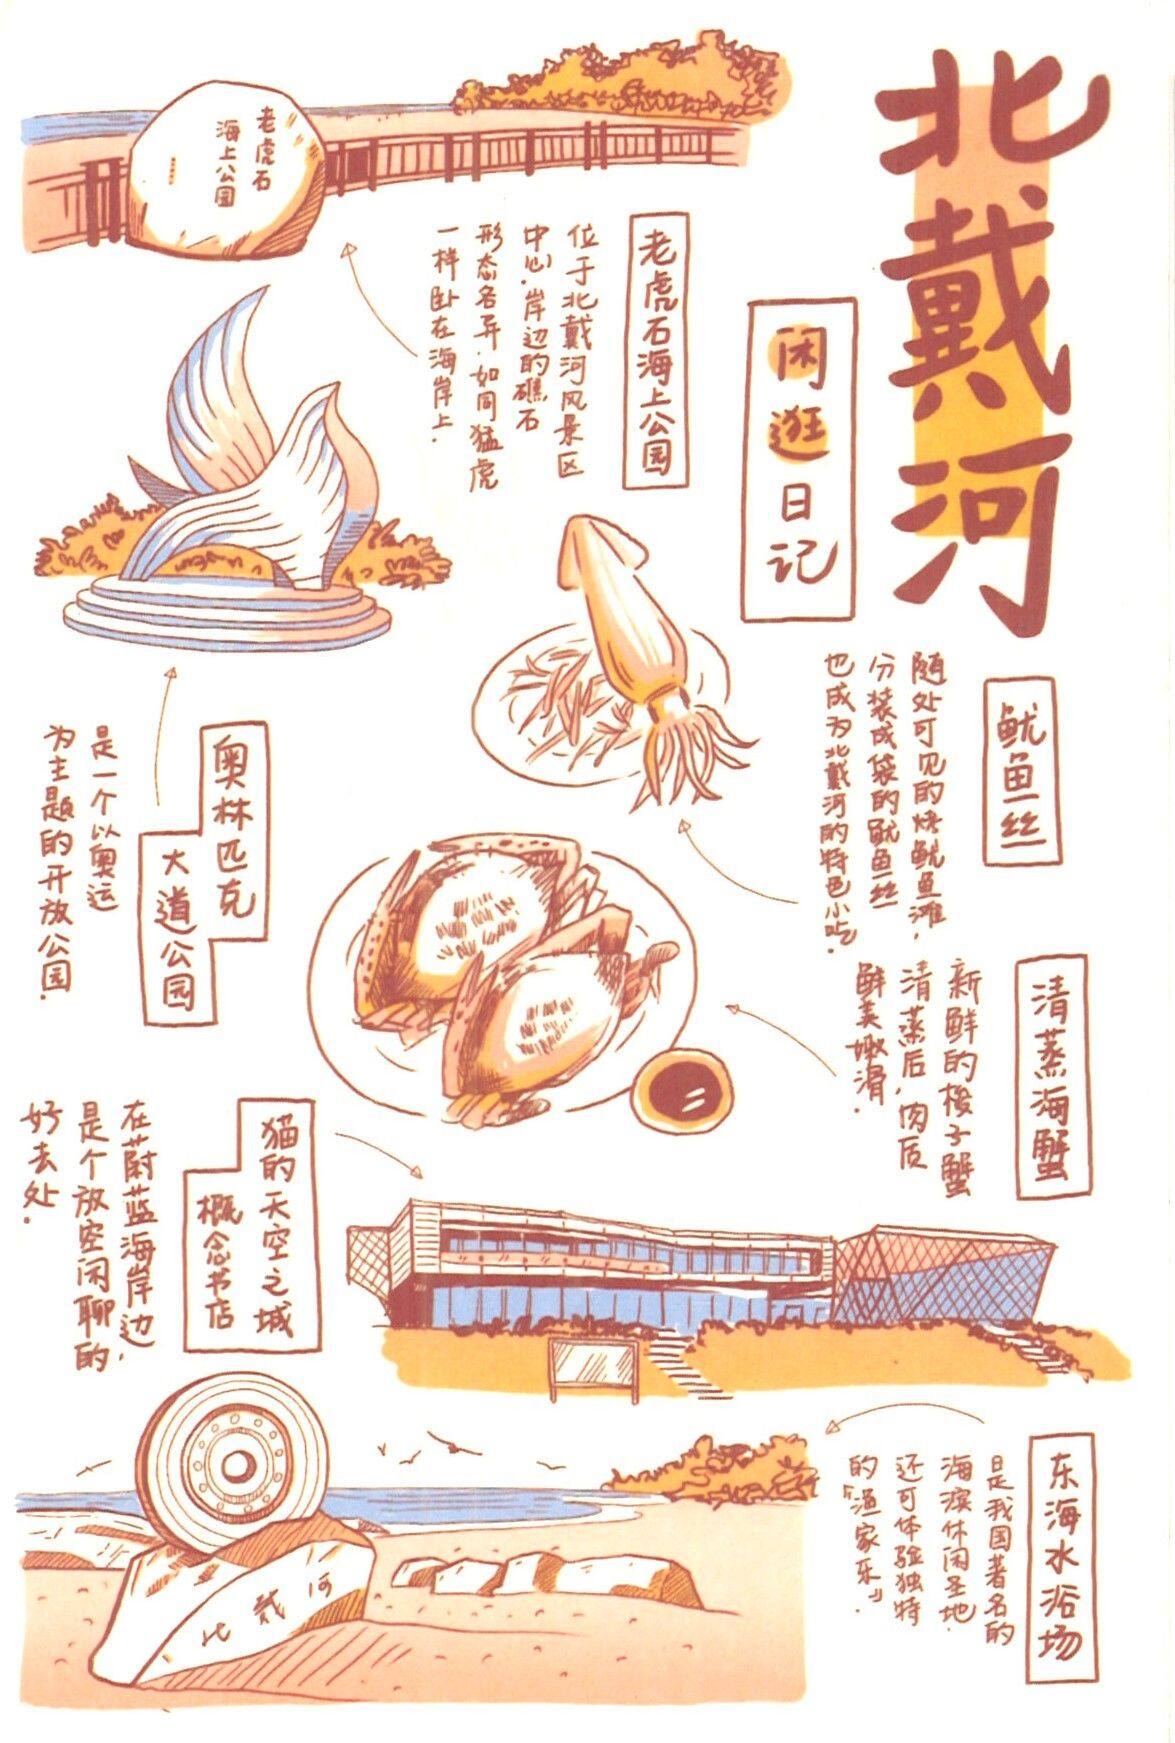 北戴河
闲逛日记
老虎石
海上公园
老虎石海上公园
位于北戴河风景区
中心.岸边的礁石
形态各异.如同猛虎
一样卧在海岸上.
鱿鱼丝
随处可见的烤鱿鱼滩.
分装成袋的鱿鱼丝
也成为北戴河的特色小吃.
奥林匹克
大道公园
是一个以奥运
为主题的开放公园.
清蒸海蟹
新鲜的梭子蟹
清蒸后,肉质
鲜美嫩滑.
猫的天空之城
概念书店
在蔚蓝海岸边,
是个放空闲聊的
好去处.
东海水浴场
是我国著名的
海滨休闲圣地.
还可体验独特
的『渔家乐』.
北戴河